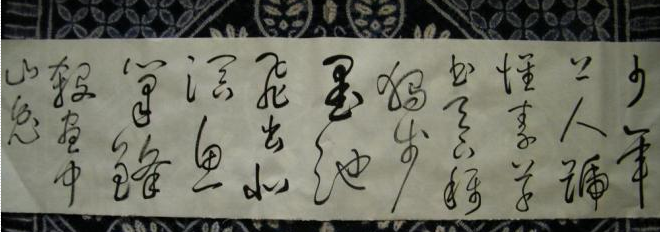 少年
上人號
懷素草
書天下稱
獨步
墨池
飛出北
溟魚
筆鋒
殺盡中
山兔